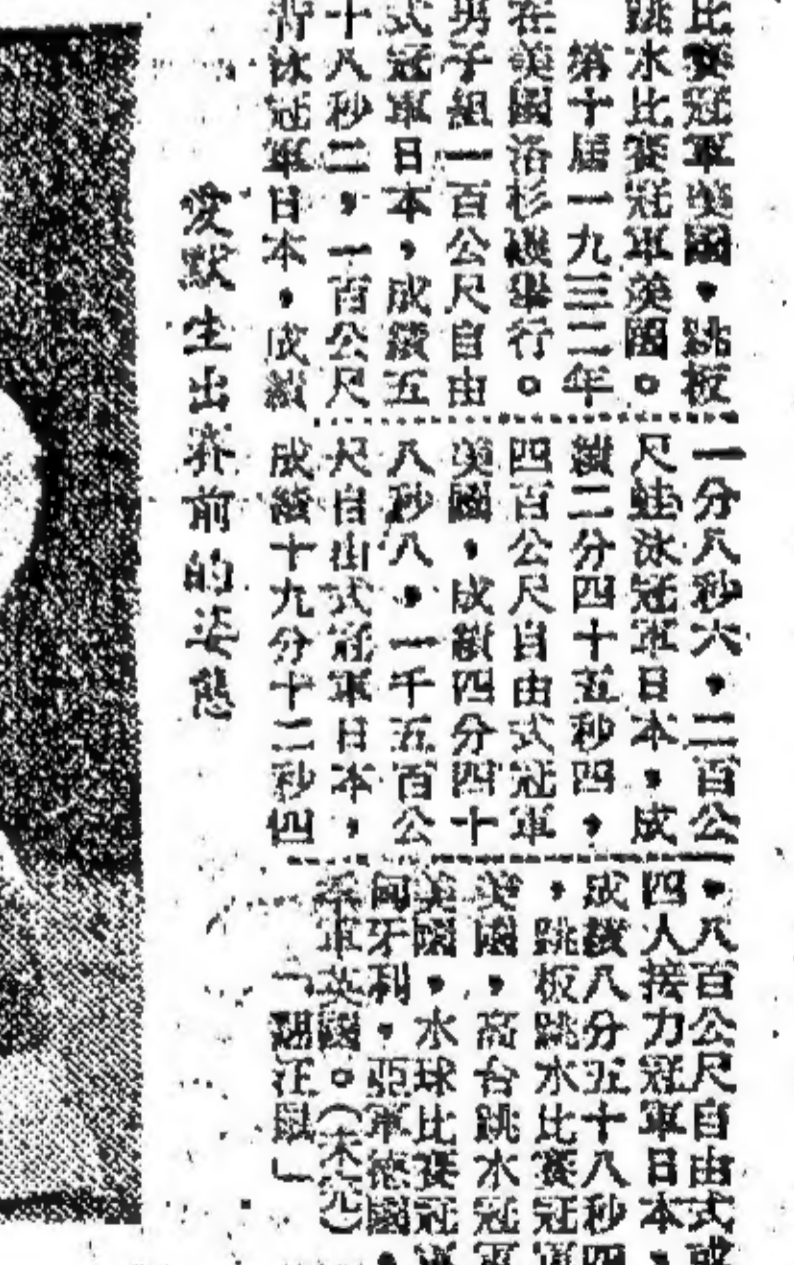 比賽冠軍美國，跳板
跳水比賽冠軍美國。
第十屆一九三二年
在美國洛杉磯舉行。
男子組一百公尺自由
式冠軍日本，成績五
十八秒二，一百公尺
背泳冠軍日本，成績
一分八秒六，二百公
尺蛙泳冠軍日本，成
績二分四十五秒四，
四百公尺自由式冠軍
美國，成績四分四十
八秒八，一千五百公
尺自由式冠軍日本，
成績十九分十二秒四
，八百公尺自由式
四人接力冠軍日本，
成績八分五十八秒四
，跳板跳水比賽冠軍
美國，高台跳水冠軍
美國，水球比賽冠軍
匈牙利，亞軍德國，
季軍英國。（未完）
「胡汪」
愛默生出賽前的姿態